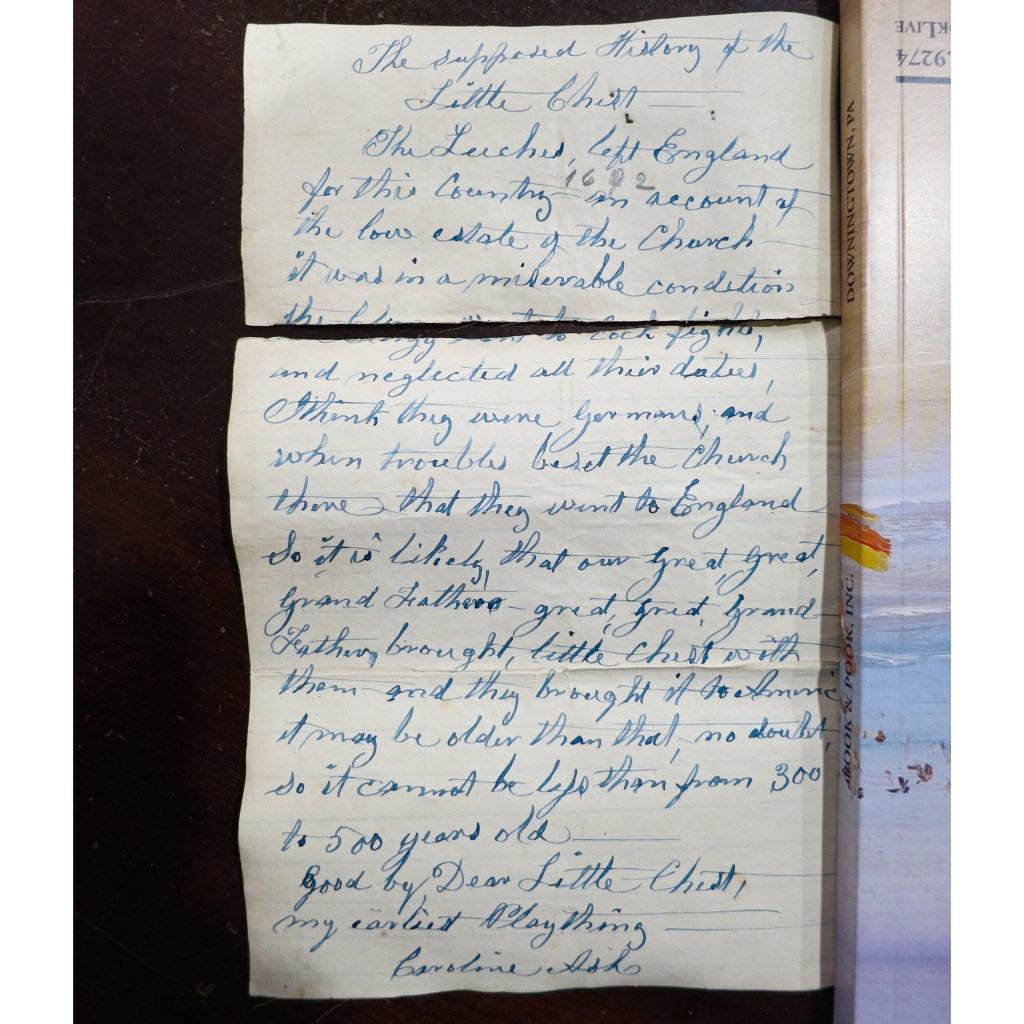 The supposed History of the
Little Chest —
The Leeches, left England
1682
for this Country — on account of
the low estate of the Church —
it was in a miserable condition
the Clergy went to Cock fights,
and neglected all their duties,
I think they were Germans, and
when troubles beset the Church
there — that they went to England
So it is likely, that our Great, Great,
Grand Fathers — great, great, Grand
Father, brought, little Chest with
them — and they brought it to Americ
it may be older than that, no doubt,
so it cannot be less than from 300
to 500 years old —
Good by, Dear Little Chest,
my earliest Plaything —
Caroline Ash
OKLIVE
.9274
DOWNINGTOWN, PA
OOK & POOK, INC.